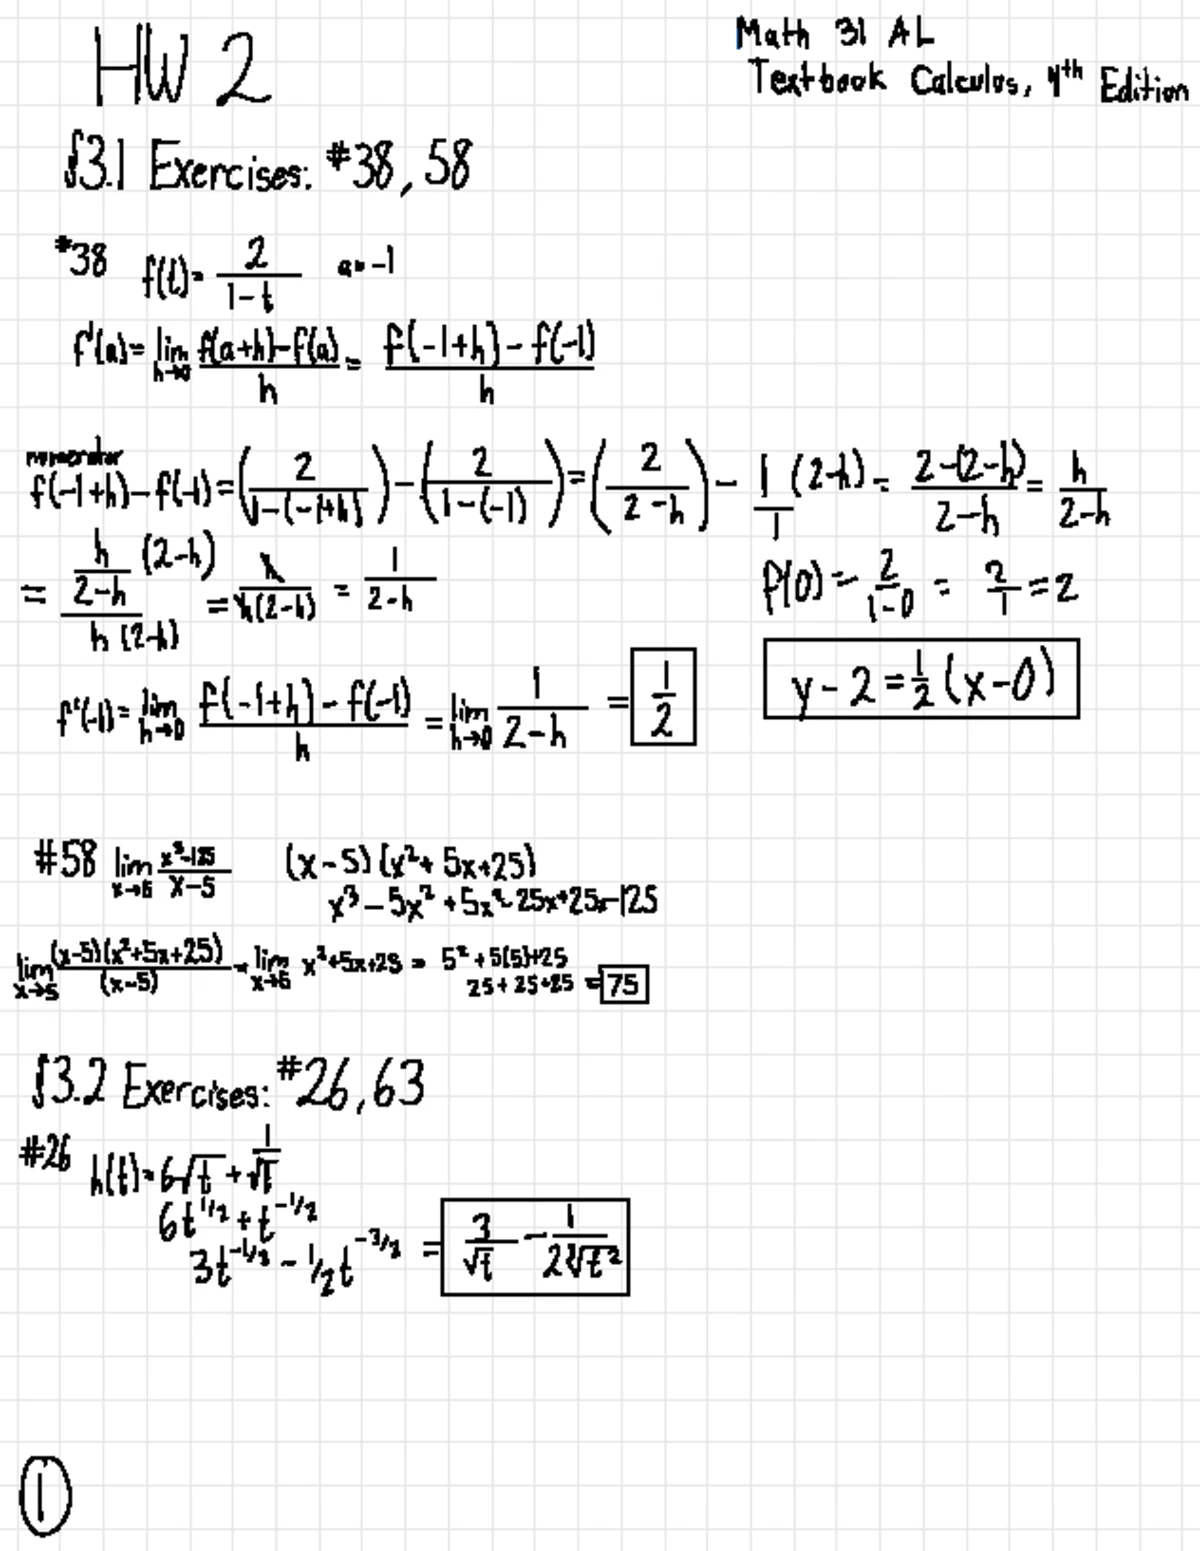 HW 2
Math 31 AL
Textbook Calculus, 4th Edition
§3.1 Exercises: #38, 58
#38 f(t) = 2/(1-t) a = -1
f'(a) = lim h→0 (f(a+h)-f(a))/h = (f(-1+h)-f(-1))/h
numerator
f(-1+h)-f(-1) = (2/(1-(-1+h))) - (2/(1-(-1))) = (2/(2-h)) - 1/1 (2-h) = (2-(2-h))/(2-h) = h/(2-h)
= (h/(2-h) (2-h))/(h(2-h)) = h/(h(2-h)) = 1/(2-h)
f(0) = 2/(1-0) = 2/1 = 2
f'(-1) = lim h→0 (f(-1+h)-f(-1))/h = lim h→0 1/(2-h) = 1/2
y-2 = 1/2 (x-0)
#58 lim x→5 (x³-125)/(x-5) (x-5)(x²+5x+25)
x³-5x²+5x²-25x+25x-125
lim x→5 ((x-5)(x²+5x+25))/(x-5) = lim x→5 x²+5x+25 = 5²+5(5)+25
25+25+25 = 75
§3.2 Exercises: #26, 63
#26 h(t) = 6√t + 1/√t
6t^1/2 + t^-1/2
3t^-1/2 - 1/2t^-3/2 = 3/√t - 1/(2∛t²)
1